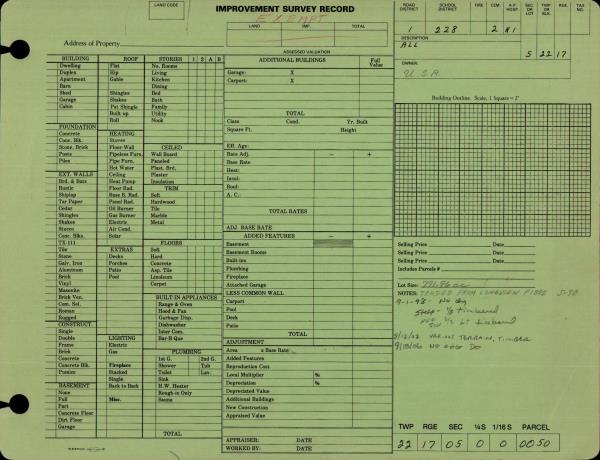 LAND CODE
IMPROVEMENT SURVEY RECORD
EXEMPT
LAND IMP. TOTAL
Address of Property
ASSESSED VALUATION
ROAD DISTRICT SCHOOL DISTRICT FIRE CEM. A.P. HOSP. SEC OR LOT TWP OR BLK RGE. TAX NO.
228 2 #1
DESCRIPTION
ALL
5 22 17
OWNER:
U.S.A.
BUILDING ROOF STORIES 1 2 A B
Dwelling Flat No. Rooms
Duplex Hip Living
Apartment Gable Kitchen
Barn Dining
Shed Shingles Bed
Garage Shakes Bath
Cabin Pat Shingle Family
Built-up Utility
Roll Nook
FOUNDATION
Concrete HEATING
Conc. Blk. Stoves CEILED
Stone, Brick Floor-Wall Wall Board
Posts Pipeless Furn. Paneled
Piles Pipe Furn. Plast. Brd.
Hot Water Plaster
EXT. WALLS Ceiling Insulation
Brd. & Bats Heat Pump TRIM
Rustic Floor Rad. Soft
Shiplap Base B. Rad. Hardwood
Tar Paper Panel Rad. Tile
Cedar Oil Burner Marble
Shingles Gas Burner Metal
Shakes Electric
Stucco Air Cond.
Conc. Blks. Solar FLOORS
TX-111 Soft
Tile EXTRAS Hard
Stone Decks Concrete
Galv. Iron Porches Asp. Tile
Aluminum Patio Linoleum
Brick Pool Carpet
Vinyl
Masonite
Brick Ven. BUILT IN APPLIANCES
Com. Sel. Range & Oven
Roman Hood & Fan
Rugged Garbage Disp.
CONSTRUCT Dishwasher
Single Inter Com.
Double LIGHTING Bar-B-Que
Frame Electric
Brick Gas PLUMBING
Concrete 1st G. 2nd G.
Concrete Blk. Fireplace Shower Tub
Pumice Stacked Toilet Lav.
Single Sink
BASEMENT Back to Back H.W. Heater
None Rough-in Only
Full Misc. Sauna
Part
Concrete Floor
Dirt Floor
Garage
TOTAL
ADDITIONAL BUILDINGS Full Value
Garage: X
Carport: X
TOTAL
Class Cond. Yr. Built
Square Ft. Height
Eff. Age:
Rate Adj. − +
Base Rate
Heat:
Insul:
Roof:
A. C.:
TOTAL RATES
ADJ. BASE RATE
ADDED FEATURES − +
Basement
Basement Rooms
Built-ins
Plumbing
Fireplace
Attached Garage
LESS COMMON WALL
Carport
Pool
Deck
Patio
TOTAL
ADJUSTMENT
Area x Base Rate
Added Features
Reproduction Cost
Local Multiplier %
Depreciation %
Depreciated Value
Additional Buildings
New Construction
Appraised Value
APPRAISER: DATE
WORKED BY: DATE
Building Outline: Scale, 1 Square = 2'
Selling Price Date
Selling Price Date
Selling Price Date
Includes Parcels #
Lot Size:
NOTES: TRADED FROM LONGVIEW FIBRE 5-98
9-1-98 - No chg
TERRAIN, TIMBER
TWP RGE SEC ¼S 1/16 S PARCEL
22 17 05 0 0 0050